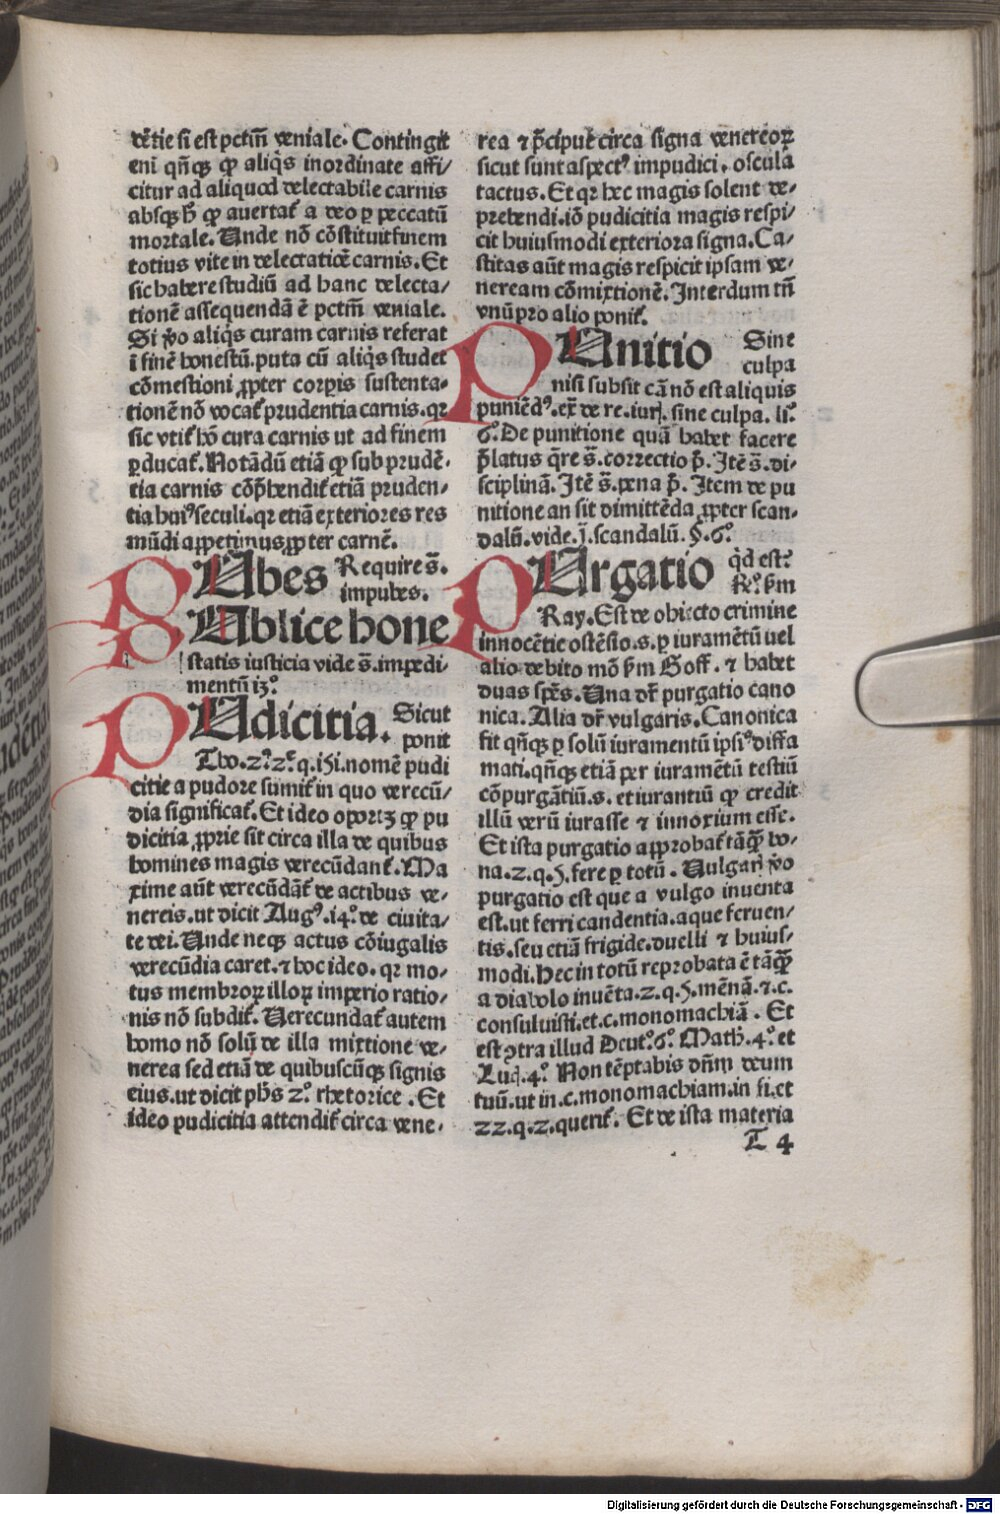 dētie si est pctm̄ veniale. Contingit
eni qn̄q; ꝙ aliq̇s inordinate affi/
citur ad aliquod delectabile carnis
absq; h̄ ꝙ auertat̉ a deo ꝑ peccatū
mortale. Unde nō cōstituit finem
totius vite in delectatiōe carnis. Et
sic habere studiū ad hanc delecta/
tionē assequendā ē pctm̄ veniale.
Si v̄o aliq̇s curam carnis referat
ī finē honestū. puta cū aliq̇s studet
cōmestioni ꝓpter corꝑis sustenta-
tionē nō vocat̉ prudentia carnis. qꝛ
sic vtit̉ hō cura carnis ut ad finem
ꝑducat̉. Notādū etiā ꝙ sub prudē-
tia carnis cōp̄hendit̉ etiā pruden-
tia huiꝰ seculi. qꝛ etiā exteriores res
mūdi appetimus ꝓpter carnē.
PUbes Require s̄.
impubes.
PUblice hone
statis iusticia vide s̄. impedi-
mentū iꝫ°.
PUdicitia. Sicut
ponit
Tho. 2ͣ. 2ͤ. q. i5i. nomē pudi
citie a pudore sumit̉ in quo verecū/
dia significat̉. Et ideo oportꝫ ꝙ pu
dicitia ꝓprie sit circa illa de quibus
homines magis verecūdant̉. Ma
xime aūt verecūdāt̉ de actibus ve-
nereis. ut dicit Augꝰ. i4°. de ciuita-
te dei. Unde neq; actus cōiugalis
verecūdia caret. ⁊ hoc ideo. qꝛ mo-
tus membroꝝ illoꝝ imperio ratio-
nis nō subdit̉. Uerecundat̉ autem
homo nō solū de illa mixtione ve-
nerea sed etiā de quibuscūq; signis
eius. ut dicit ph̄s 2°. rhetorice. Et
ideo pudicitia attendit̉ circa vene-
rea ⁊ p̄cipue circa signa venereoꝝ
sicut sunt aspectꝰ impudici, oscula
tactus. Et qꝛ hec magis solent de-
prehendi. iō pudicitia magis respi-
cit huiusmodi exteriora signa. Ca/
stitas aūt magis respicit ipsam ve-
neream cōmixtionē. Interdum tn̄
vnū pro alio ponit̉.
PUnitio Sine
culpa
nisi subsit cā nō est aliquis
puniēdꝰ. ex̄ de re. iur̄. sine culpa. li°.
6°. De punitione quā habet facere
p̄latus q̄re s̄. correctio p̄. Itē s̄. di-
sciplinā. Itē s̄. pena p̄. Item de pu
nitione an sit dimittēda ꝓpter scan-
dalū. vide. j̄. scandalū. §. 6°.
PUrgatio q̇d est?
R°. ẜm
Ray. Est de obiecto crimine
innocētie ostēsio. s. ꝑ iuramētū uel
alio debito mō ẜm Goff. ⁊ habet
duas sp̄es. Una dr̄ purgatio cano
nica. Alia dr̄ vulgaris. Canonica
fit qn̄q; ꝑ solū iuramentū ipsiꝰ diffa
mati. qn̄q; etiā per iuramētū testiū
cōpurgātiū. s. et iurantiū ꝙ credit
illū verū iurasse ⁊ innoxium esse.
Et ista purgatio approbat̉ tāꝙ̄ bo-
na. 2. q. 5. fere ꝑ totū. Uulgaris v̄o
purgatio est que a vulgo inuenta
est. ut ferri candentia. aque feruen/
tis. seu etiā frigide. duelli ⁊ huius/
modi. Hec in totū reprobata ē tāꝙ̄
a diabolo inuēta. 2. q. 5. mēnā. ⁊. c.
consuluisti. et. c. monomachiā. Et
est ꝯtra illud Deut°. 6°. Math. 4°. et
Luc̄. 4°. Non tēptabis dn̄m deum
tuū. ut in. c. monomachiam. in fi. et
22. q. 2. querit̉. Et de ista materia
T 4
Digitalisierung gefördert durch die Deutsche Forschungsgemeinschaft - DFG